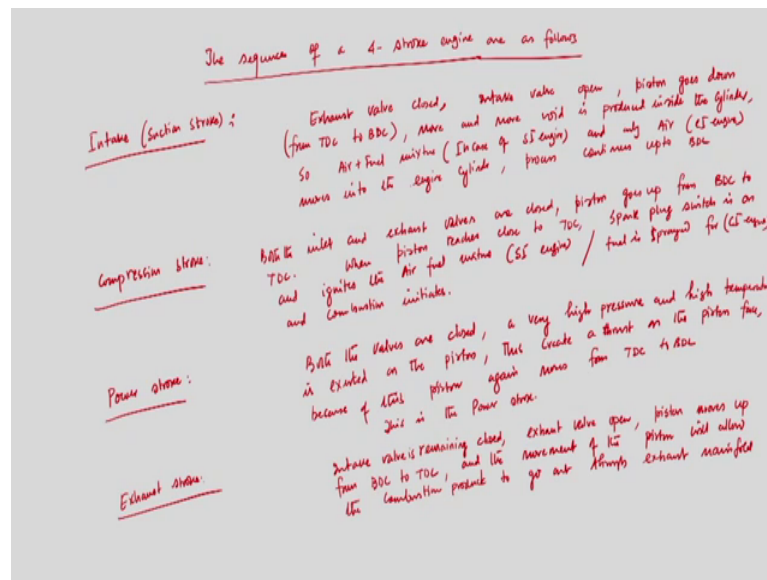 The sequences of a 4- stroke engine are as follows
Intake (Suction Stroke) :
Exhaust valve closed, intake valve open, piston goes down
(from TDC to BDC), more and more void is produced inside the cylinder,
So Air + Fuel mixture (In case of SI engine) and only Air (CI engine)
moves into the engine cylinder, process continues upto BDC
Compression Stroke:
Both the inlet and exhaust valves are closed, piston goes up from BDC to
TDC. When piston reaches close to TDC, Spark plug switch is on
and ignites the Air fuel mixture (SI engine) / fuel is sprayed for (CI engine)
and Combustion initiates.
Power stroke :
Both the valves are closed, a very high pressure and high temperature
is exerted on the piston, This create a thrust on the piston face,
because of this piston again moves from TDC to BDC
This is the Power stroke.
Exhaust stroke:
Intake valve is remaining closed, exhaust valve open, piston moves up
from BDC to TDC, and the movement of the piston will allow
the combustion product to go out through exhaust manifold